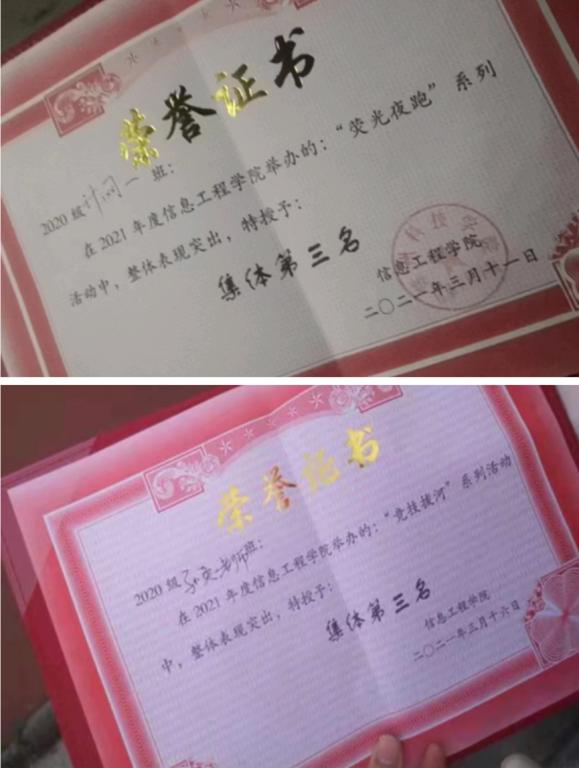 荣誉证书
2020级计网一班：
在2021年度信息工程学院举办的：“荧光夜跑”系列
活动中，整体表现突出，特授予：
集体第三名
信息工程学院
二〇二一年三月十一日
荣誉证书
2020级 老师班：
在2021年度信息工程学院举办的：“竞技拔河”系列活动
中，整体表现突出，特授予：
集体第三名
信息工程学院
二〇二一年三月十六日